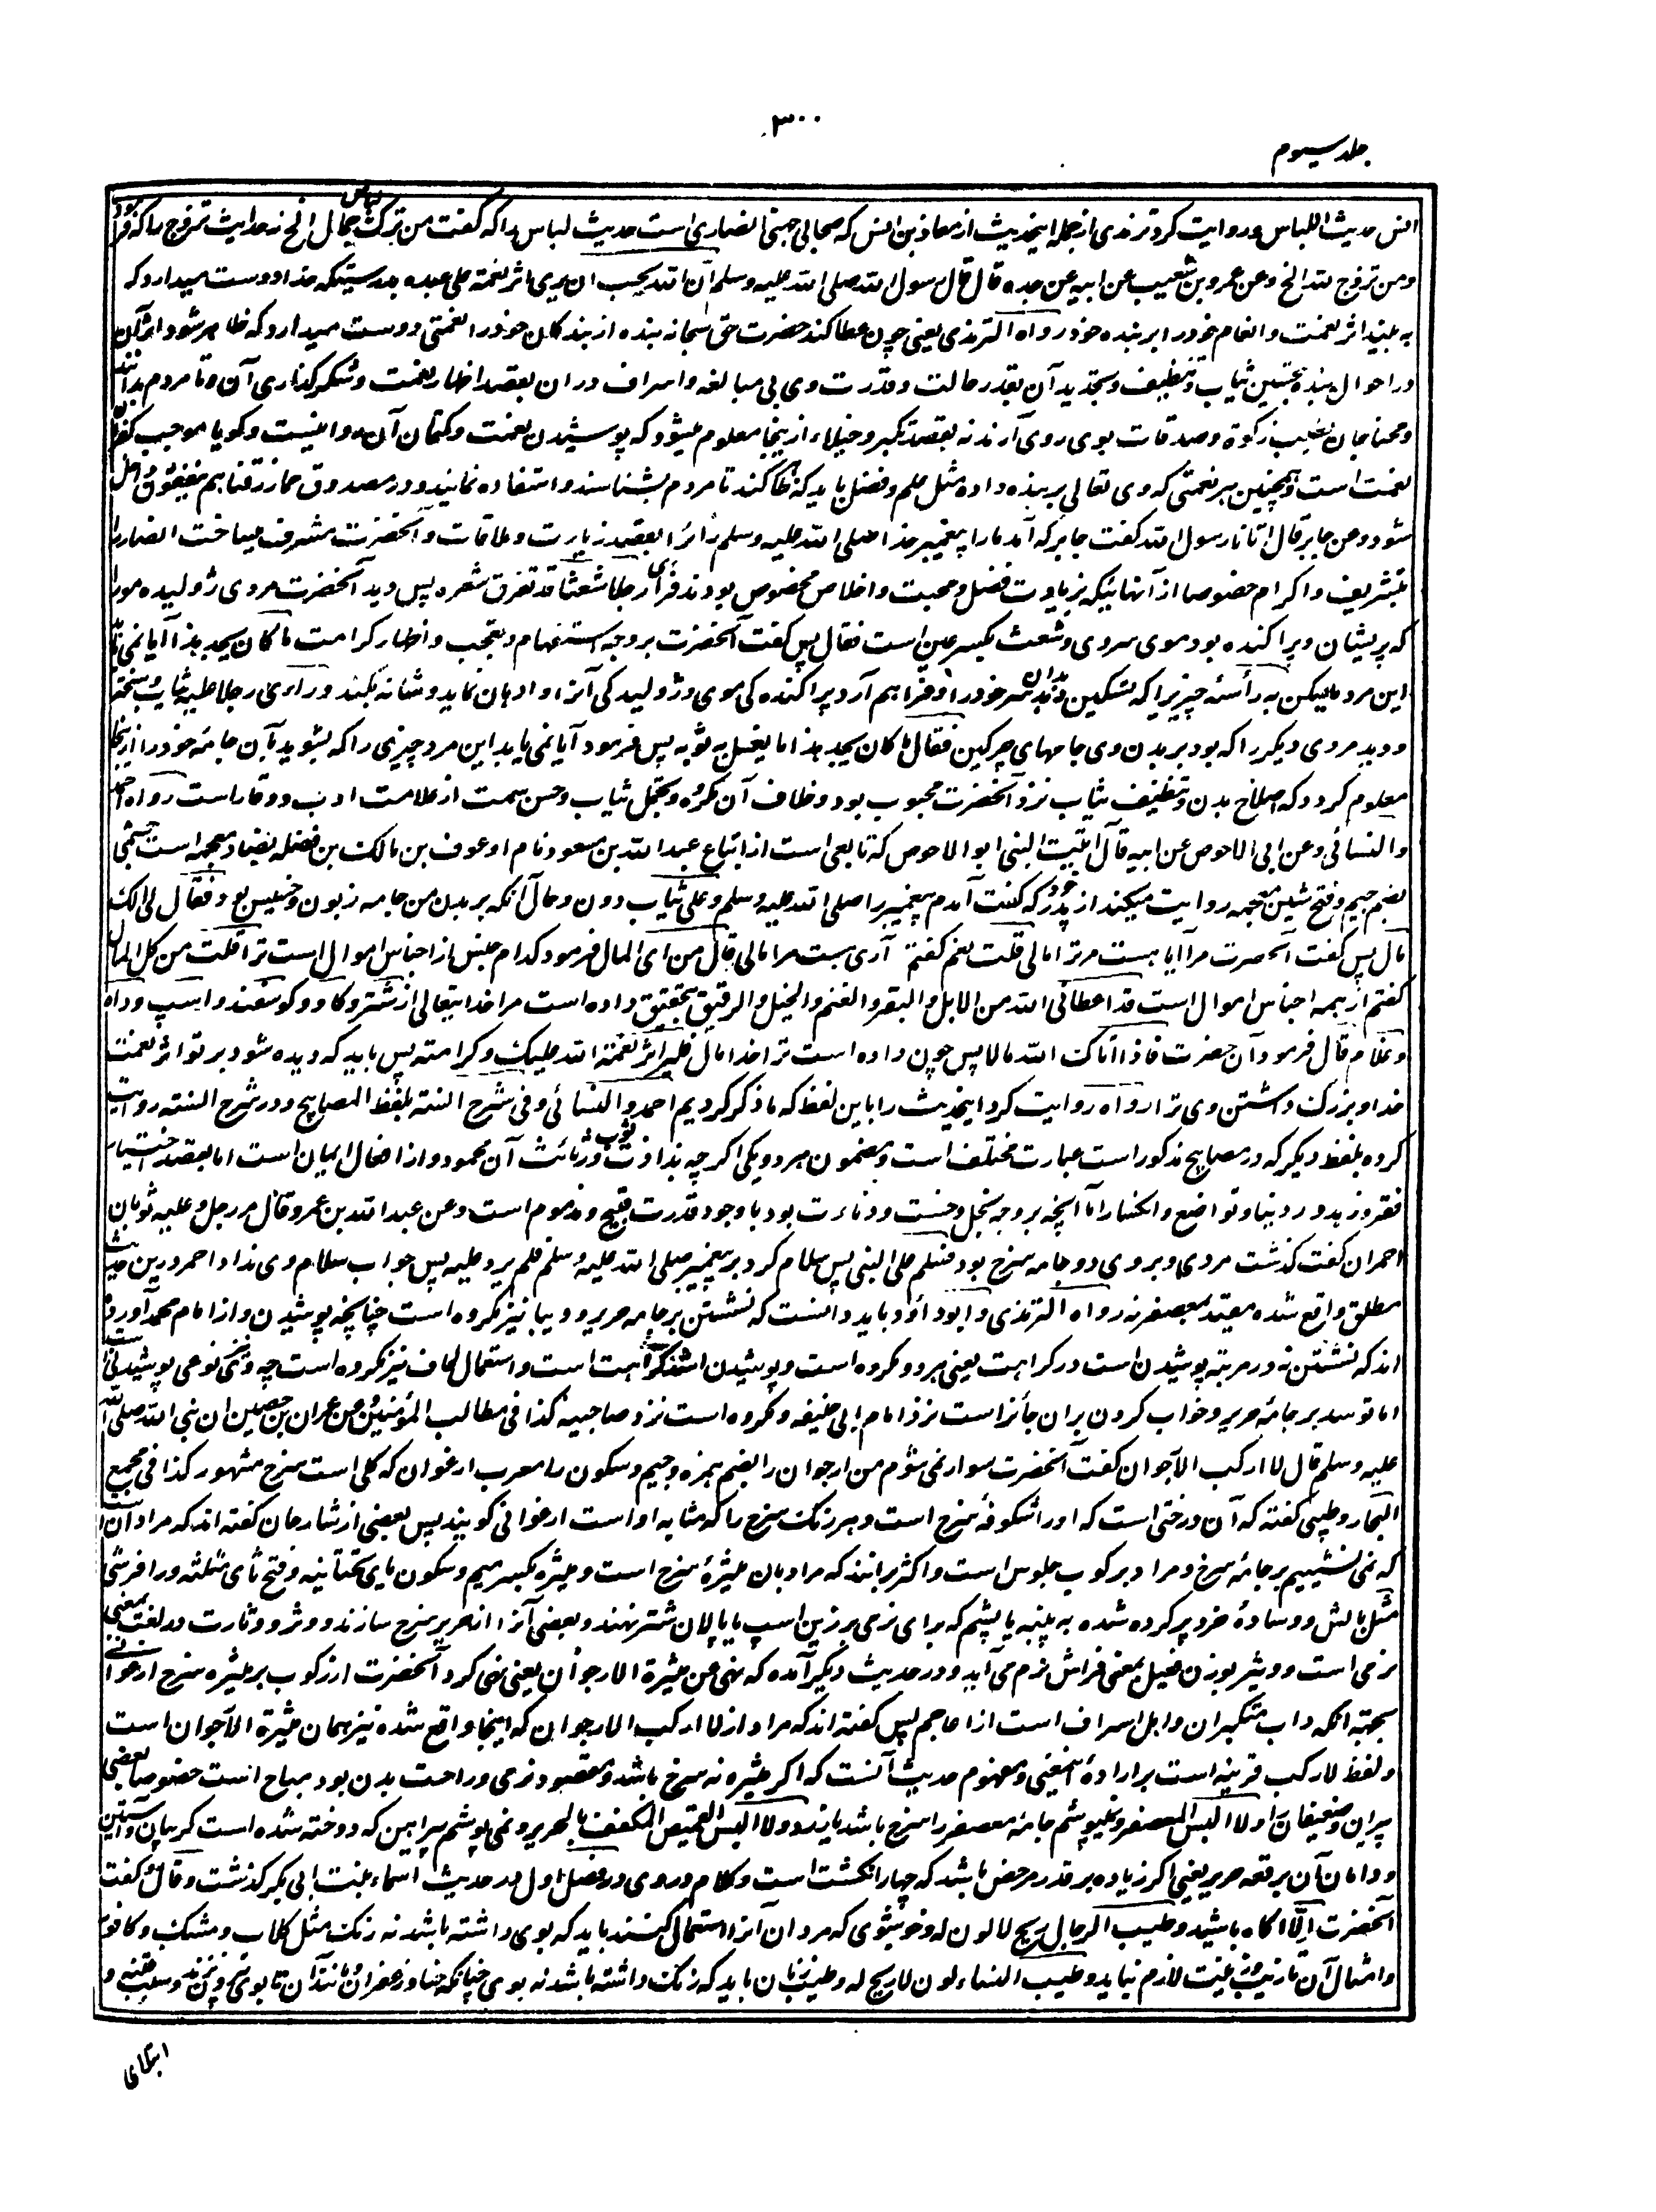 ٣٠٠
جلد سیوم
انس حدیث اللباس و روایت کرد ترمذی از جمله اینحدیث از معاذ بن انس که صحابی جهنی انصاری است حدیث لباس را که گفت من ترک لباس جمال الخ نه حدیث تزوج را که فرمود
ومن تزوج لله الخ وعن عمرو بن شعیب عن ابیه عن جده قال قال رسول الله صلی الله علیه وسلم ان الله یحب ان یری اثر نعمته علی عبده بدرستیکه خدا دوست میدارد که
به بیند اثر نعمت و انعام خود را بر بنده خود رواه الترمذی یعنی چون عطا کند حضرت حق سبحانه بنده از بندگان خود را نعمتی دوست میدارد که ظاهر شود اثر آن
در احوال بنده بتحسین ثیاب و تنظیف و تجدید آن بقدر حالت و قدرت وی بی مبالغه و اسراف در ان بقصد اظهار نعمت و شکر گذاری آن و تا مردم بدانند
ومحتاجان بطلب زکوة و صدقات بوی روی آرند نه بقصد تکبر و خیلاء ازینجا معلوم میشود که پوشیدن نعمت و کتمان آن روا نیست و گویا موجب کفران
نعمت است و همچنین هر نعمتی که وی تعالی بر بنده داده مثل علم و فضل باید که ظاهر کند تا مردم بشناسند و استفاده نمایند و در مصدوق مما رزقناهم ینفقون داخل
شود وعن جابر قال اتانا رسول الله گفت جابر که آمد ما را پیغمبر خدا صلی الله علیه وسلم زائرا بقصد زیارت و ملاقات و آنحضرت مشرف میساخت انصار را
بتشریف و اکرام خصوصا از آنها نیکه بزیادت فضل و محبت و اخلاص مخصوص بودند فرأی رجلا شعثا قد تفرق شعره پس دید آنحضرت مردی ژولیده مو را
که پریشان و پراکنده بود موی سر وی و شعث بکسر عین است فقال پس گفت آنحضرت بر وجه استفهام و تعجب و اظهار کرامت ما کان یجد هذا آیا نمی یابد
این مرد ما یسکن به رأسه چیزی را که تسکین دهد بدان سر خود را و فراهم آرد پراکنده گی موی و ژولیدگی آنرا و ادهان نماید و شانه بکند ورأی رجلا علیه ثیاب وسخة
و دید مردی دیگر را که بود بر بدن وی جامهای چرکین فقال ما کان یجد هذا ما یغسل به ثوبه پس فرمود آیا نمی یابد این مرد چیزی را که بشوید بآن جامه خود را ازینجا
معلوم گردد که اصلاح بدن و تنظیف ثیاب نزد آنحضرت محبوب بود و خلاف آن مکروه و تجمل ثیاب و حسن سمت از علامت ادب و وقار است رواه احمد
والنسائی وعن ابی الاحوص عن ابیه قال اتیت النبی ابو الاحوص که تابعی است از اتباع عبد الله بن مسعود نام او عوف بن مالک بن فضله بضاد معجمه است جشمی
بضم جیم و فتح شین معجمه روایت میکند از پدر خود که گفت آمدم پیغمبر را صلی الله علیه وسلم وعلی ثیاب دون و حال آنکه بر بدن من جامه زبون و خسیس بود فقال لی الک
مال پس گفت آنحضرت مرا آیا هست مر ترا مالی قلت نعم گفتم آری هست مرا مالی قال من ای المال فرمود کدام جنس از اجناس اموال است ترا قلت من کل المال
گفتم از همه اجناس اموال است قد اعطانی الله من الابل والبقر والغنم والخیل والرقیق بتحقیق داده است مرا خدایتعالی از شتر و گاو و گوسفند و اسپ و داه
و غلام قال فرمود آن حضرت فاذا اتاک الله مالا پس چون داده است ترا خدا مال فلیر اثر نعمة الله علیک وکرامته پس باید که دیده شود بر تو اثر نعمت
خدا و بزرگ داشتن وی ترا رواه روایت کرد اینحدیث را باین لفظ که ما ذکر کردیم احمد والنسائی وفی شرح السنه بلفظ المصابیح و در شرح السنه روایت
کرده بلفظ دیگر که در مصابیح مذکور است عبارت مختلف است و مضمون هر دو یکی اگر چه بذاذت ثوب و رثاثت آن محمود و از افعال ایمان است اما بقصد اختیار
فقر و زهد در دنیا و تواضع و انکسار اما آنچه بر وجه بخل و خست و دناءت بود با وجود قدرت قبیح و مذموم است وعن عبد الله بن عمرو قال مر رجل وعلیه ثوبان
احمران گفت گذشت مردی و بر وی دو جامه سرخ بود فسلم علی النبی پس سلام کرد بر پیغمبر صلی الله علیه وسلم فلم یرد علیه پس جواب سلام وی نداد احمر درین حدیث
مطلق واقع شده مقید بمعصفر نه رواه الترمذی و ابو داؤد باید دانست که نشستن بر جامه حریر و دیبا نیز مکروه است چنانچه پوشیدن و از امام محمد آورده
اند که نشستن نه در مرتبه پوشیدن است در کراهت یعنی هر دو مکروه است و پوشیدن اشد کراهت است و استعمال لحاف نیز مکروه است چه وی نوعی پوشیدنی است
اما توسد بر جامه حریر و خواب کردن بران جائز است نزد امام ابی حنیفه و مکروه است نزد صاحبیه کذا فی مطالب المؤمنین وعن عمران بن حصین ان نبی الله صلی الله
علیه وسلم قال لا ارکب الارجوان گفت آنحضرت سوار نمی شوم من ارجوان را بضم همزه و جیم و سکون را معرب ارغوان که گلی است سرخ مشهور کذا فی مجمع
البحار و طیبی گفته که آن درختی است که او را شگوفه سرخ است و هر رنگ سرخ را که مشابه او است ارغوانی گویند پس بعضی از شارحان گفته اند که مراد آنست
که نمی نشینیم بر جامه سرخ و مراد برکوب جلوس است و اکثر برانند که مراد بان میثرهٔ سرخ است و میثره بکسر میم و سکون یای تحتانیه و فتح ثای مثلثه و را فرشی
مثل بالش و وسادهٔ خرد پر کرده شده به پنبه یا پشم که برای نرمی بر زین اسپ یا پالان شتر نهند و بعضی آنرا از حریر سرخ سازند و وثر و وثارت در لغت بمعنی
نرمی است و وثیر بوزن فعیل بمعنی فراش نرم می آید و در حدیث دیگر آمده که نهی عن میثرة الارجوان یعنی نهی کرد آنحضرت از رکوب بر میثره سرخ ارغوانی
بجهة آنکه داب متکبران و اهل اسراف است از اعاجم پس گفته اند که مراد از لا ارکب الارجوان که اینجا واقع شده نیز همان میثرة الارجوان است
و لفظ لا رکب قرینه است بر ارادهٔ اینمعنی و مفهوم حدیث آنست که اگر میثره نه سرخ باشد و مقصود نرمی و راحت بدن بود مباح است خصوصا بعضی
پیران و ضعیفان را ولا البس المعصفر و نمیپوشم جامه معصفر را سرخ باشد یا زرد ولا البس القمیص المکفف بالحریر و نمی پوشم پیراهن که دوخته شده است گریبان و آستین
و دامان آن بر قعه حریر یعنی اگر زیاده بر قدر مرخص باشد که چهار انگشت است و کلام در وی در فصل اول در حدیث اسماء بنت ابی بکر گذشت وقال گفت
آنحضرت الا آگاه باشید وطیب الرجال ریح لا لون له و خوشبوی که مردان آنرا استعمال کنند باید که بوی داشته باشد نه رنگ مثل گلاب و مشک و کافور
و امثال آن تا زینت لازم نیاید وطیب النساء لون لا ریح له و طیب زنان باید که رنگ داشته باشد نه بوی چنانکه حنا و زعفران و مانند آن تا بوی